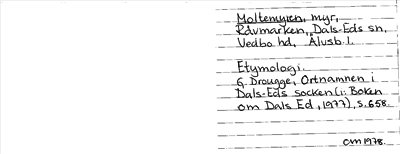 Moltemyren, myr,
Rävmarken, Dals-Eds sn,
Vedbo hd, Älvsb. l.
Etymologi.
G. Drougge, Ortnamnen i
Dals-Eds socken (i: Boken
om Dals Ed, 1977), s. 658.
CM 1978.